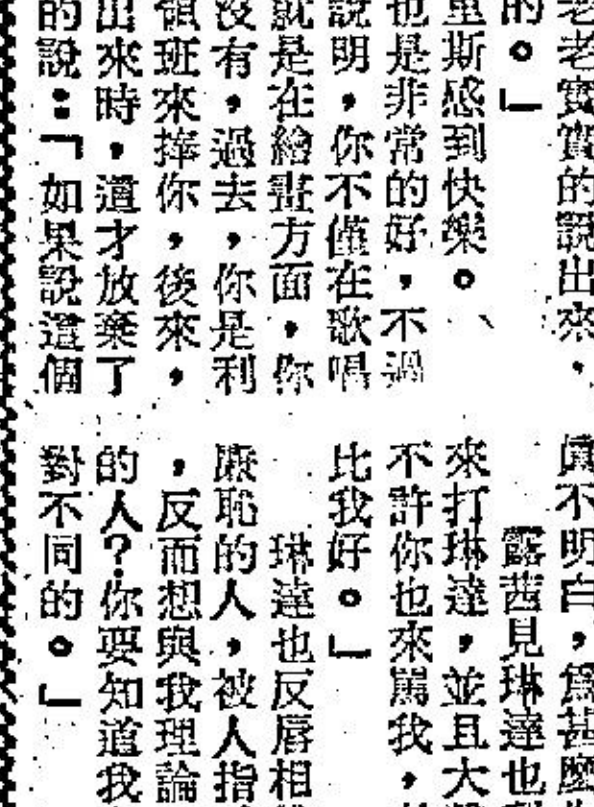 老老實實的說出來，
的。」
里斯感到快樂。
也是非常的好，不過
說明，你不僅在歌唱
就是在繪畫方面，你
沒有，過去，你是利
領班來捧你，後來，
出來時，這才放棄了
的說：「如果說這個
真不明白，爲甚麼
露茜見琳達也
來打琳達，並且大
不許你也來罵我，
比我好。」
琳達也反唇相
廉恥的人，被人指
，反而想與我理論
的人？你要知道我
對不同的。」